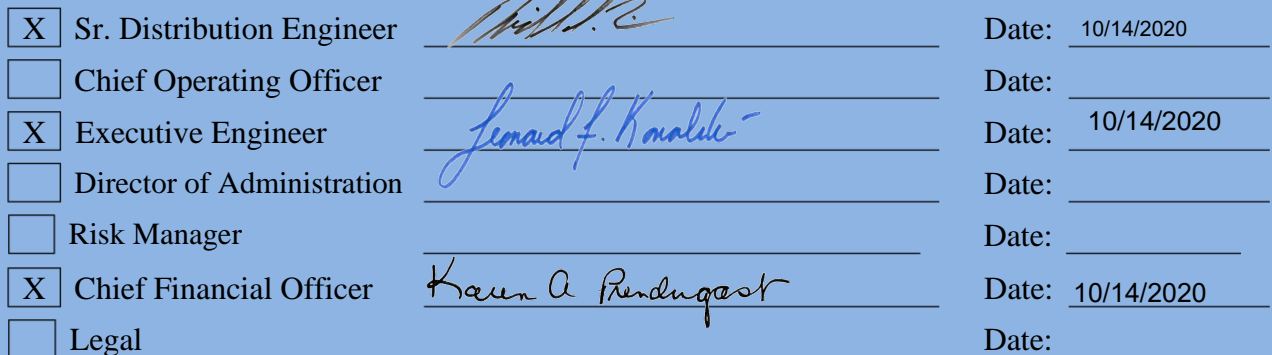 X Sr. Distribution Engineer Date: 10/14/2020
Chief Operating Officer Date:
X Executive Engineer Leonard F. Date: 10/14/2020
Director of Administration Date:
Risk Manager Date:
X Chief Financial Officer Karen A Prendergast Date: 10/14/2020
Legal Date: